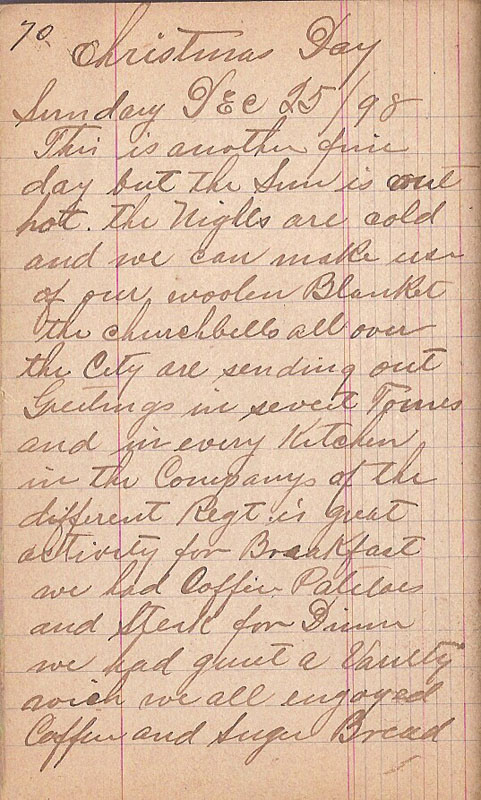 70
Christmas Day
Sunday DEc 25/98
This is another fine
day but the Sun is
hot. the Nights are cold
and we can make use
of our woolen Blanket
the churchbells all over
the City are sending out
Greetings in seveet Tones
and in every Kitchen
in the Companys of the
different Regt. is great
activity for Breakfast
we had Coffee Patitoes
and Steak for Dinner
we had quiet a Variety
wich we all engoyed
Coffee and Suger Bread